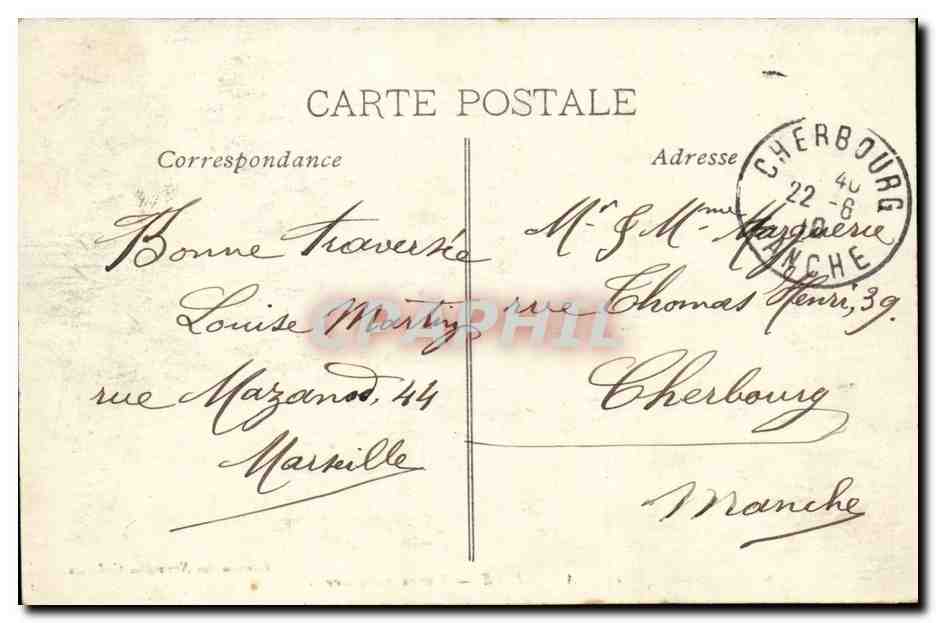 CARTE POSTALE
Correspondance
Bonne traversée
Louise Martin
rue Mazenod, 44
Marseille
Adresse
Mr & Mme Marguerie
rue Thomas Henri, 39.
Cherbourg
Manche
CHERBOURG
22-6
10
MANCHE
CPAPHIL